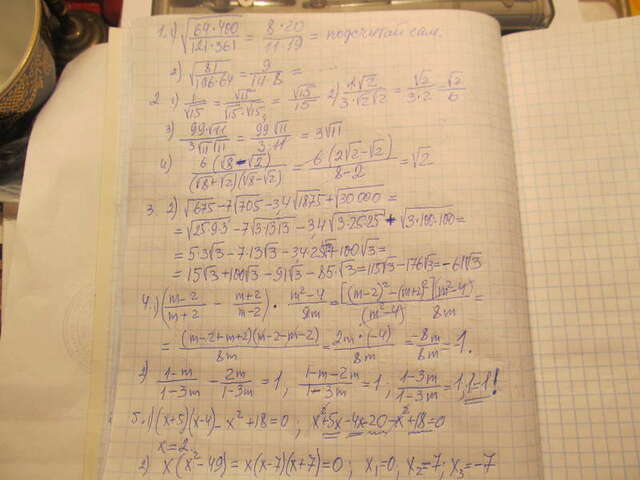 1. 1) √(64·400)/(121·361) = 8·20/11·19 = подсчитай сам.
2) √81/(196·64) = 9/14·8 =
2. 1) 1/√15 = √15/(√15·√15) = √15/15 2) 1·√2/(3·√2√2) = √2/(3·2) = √2/6
3) 99·√11/(3√11√11) = 99√11/(3·11) = 3√11
4) 6(√8-√2)/((√8+√2)(√8-√2)) = 6(2√2-√2)/(8-2) = √2
3. 2) √675-7√705-3,4√1875+√30 000 =
= √(25·9·3) - 7√(3·13·13) - 3,4√(3·25·25) + √(3·100·100) =
= 5·3√3-7·13√3-3,4·25√3+100√3 =
= 15√3+100√3-91√3-85√3=115√3-176√3=-61√3
4. 1) ((m-2)/(m+2) - (m+2)/(m-2)) · (m²-4)/8m = [(m-2)²-(m+2)²](m²-4)/((m²-4) 8m) =
= (m-2+m+2)(m-2-m-2)/8m = 2m·(-4)/8m = -8m/8m = 1.
2) (1-m)/(1-3m) - 2m/(1-3m) = 1; (1-m-2m)/(1-3m) = 1; (1-3m)/(1-3m) = 1, 1=1!
5. 1) (x+5)(x-4) - x²+18=0; x²+5x-4x-20-x²+18=0
x=2.
2) x(x²-49) = x(x-7)(x+7)=0; x₁=0; x₂=7; x₃=-7